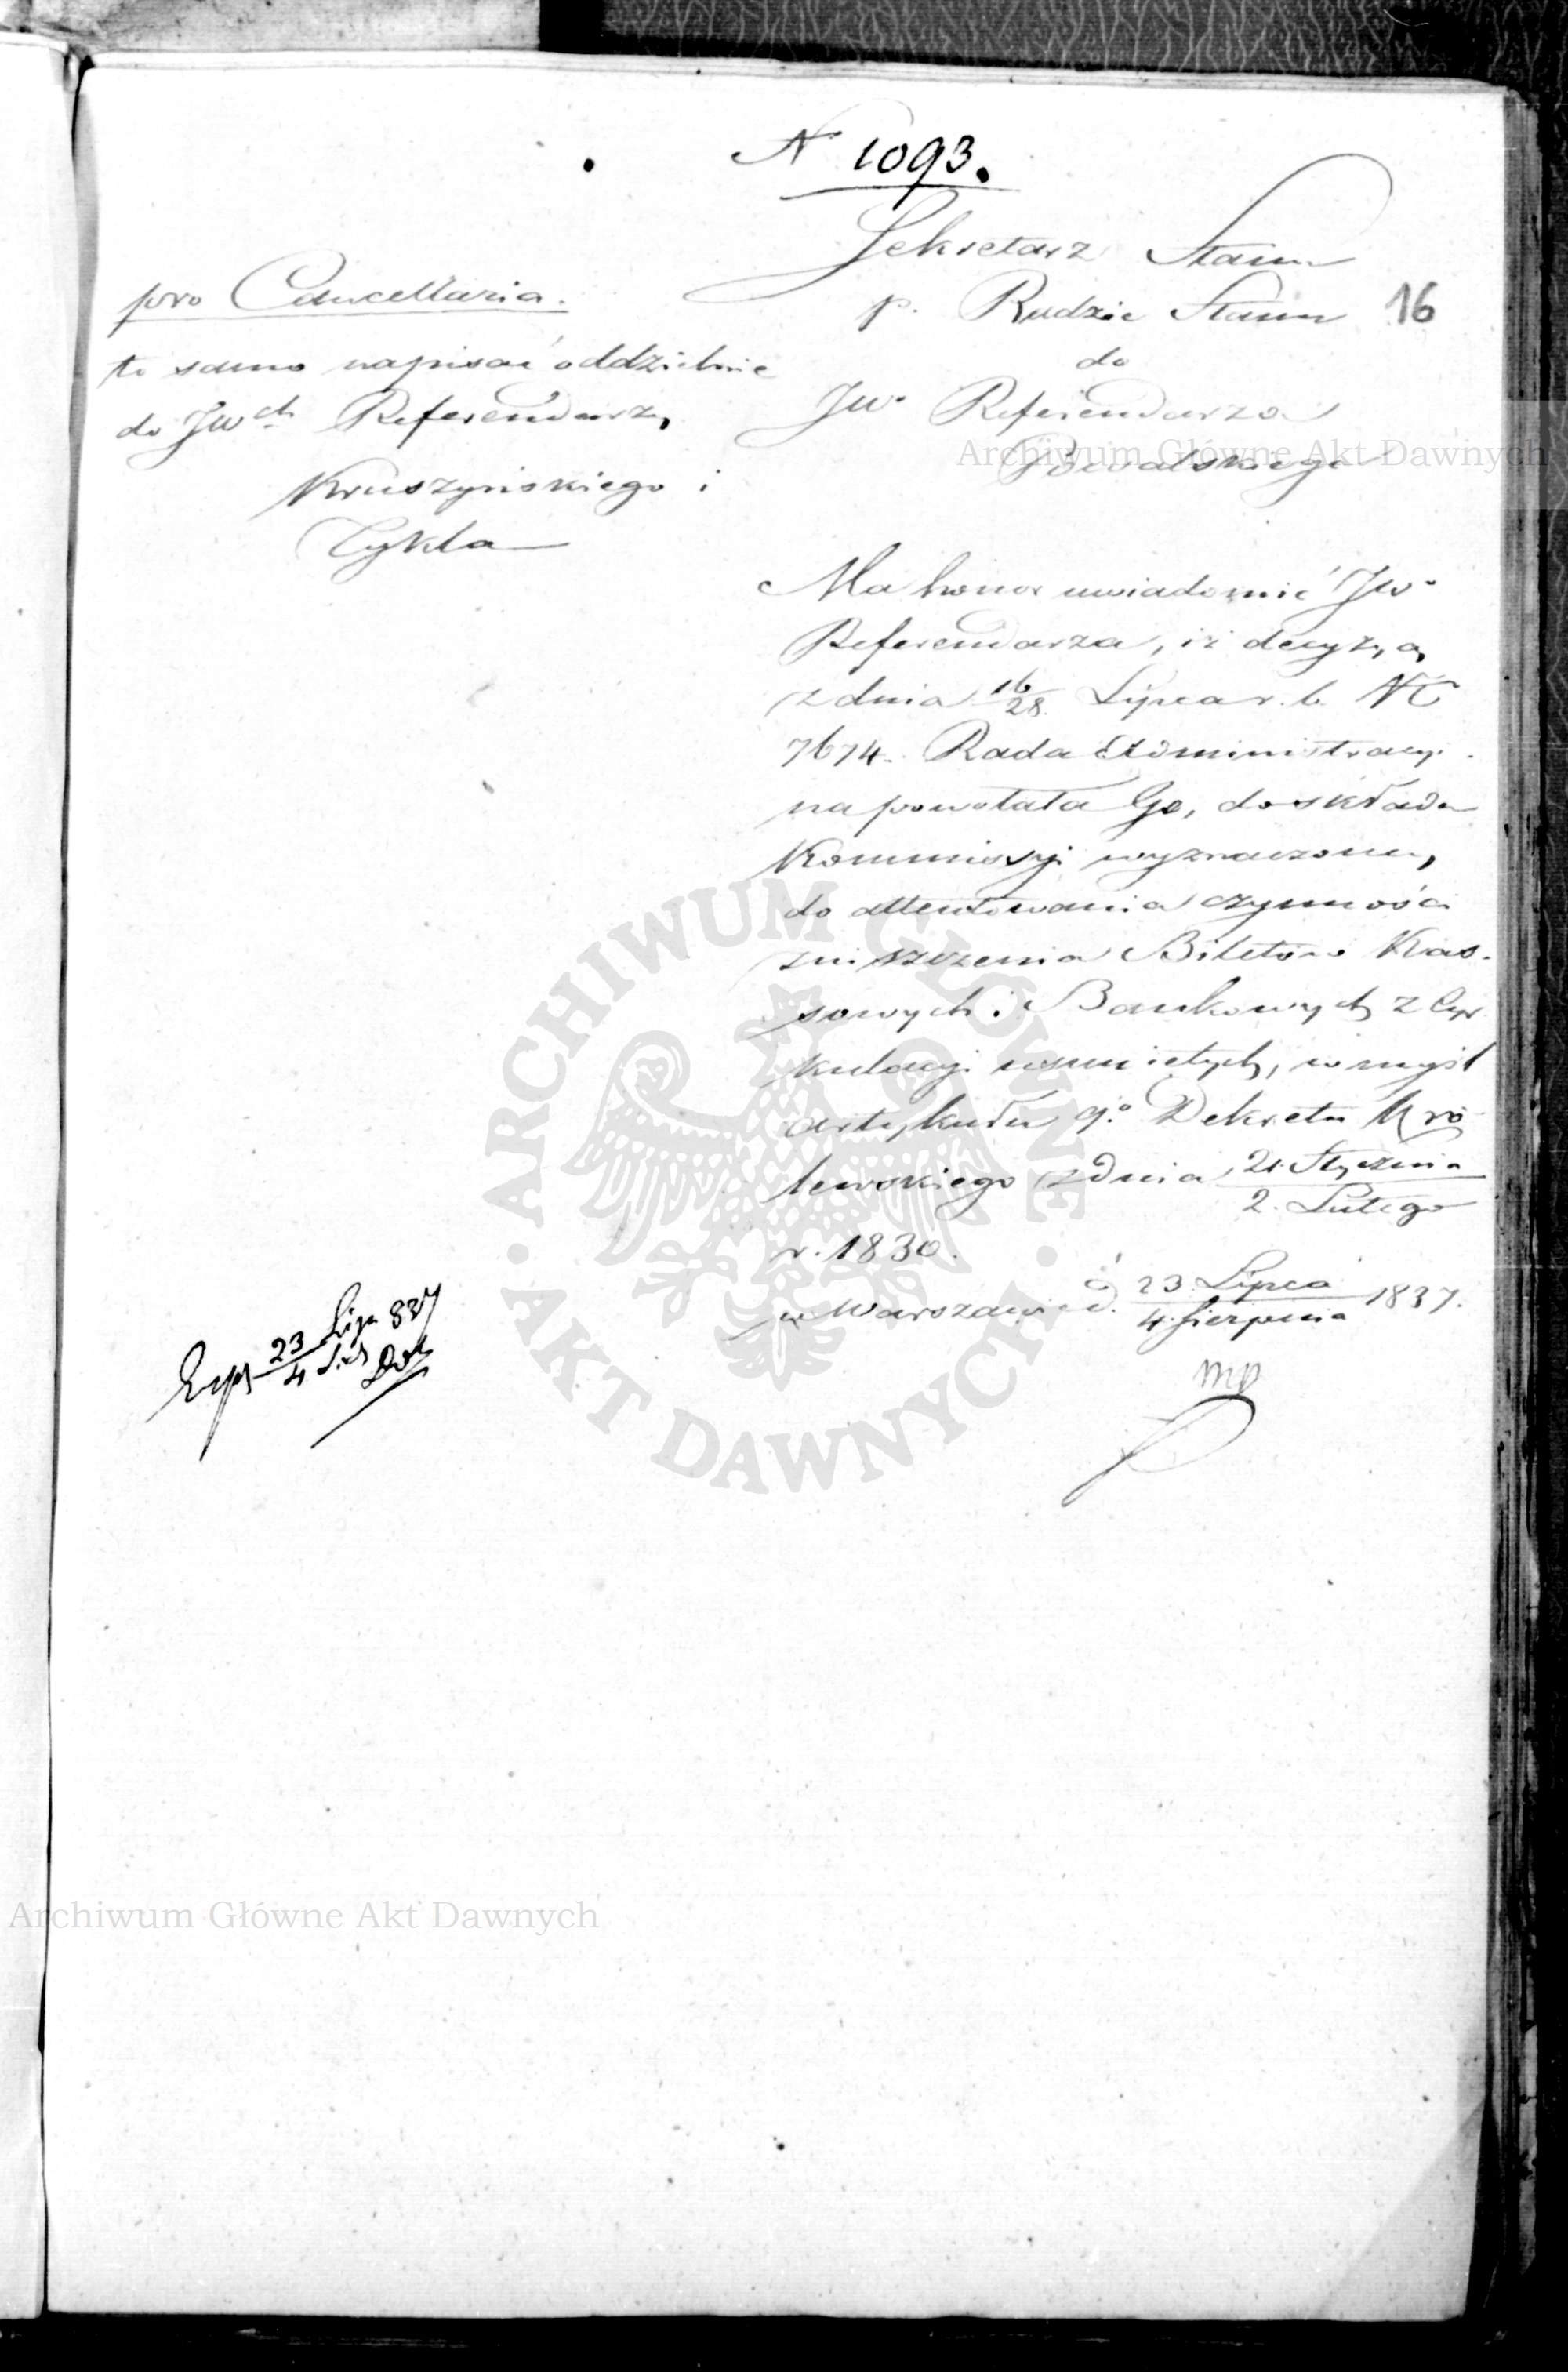 N 1093.
Sekretarz Stanu
p. Radzie Stanu 16
do
JW. Referendarza
pro Cancellaria.
to samo napisać oddzielnie
do JWch Referendarzy
Kruszyńskiego i
Cykla
Ma honor uwiadomić JW.
Referendarza, iż decyzyą
z dnia 16/28. Lipca r. b. No
7674. Rada Administracyj-
na powołała Go, do składu
Kommissyi wyznaczoney
do attentowania czynności
zniszczenia Biletów Kas-
sowych i Bankowych z Cyr-
kulacyi usuniętych, w myśl
artykułu 9.o Dekretu Kró-
lewskiego z dnia 21. Stycznia
2. Lutego
r. 1830.
w Warszawie d. 23 Lipca
4. Sierpnia 1837.
mp
Exp 23/4 Lip 837
Archiwum Główne Akt Dawnych
ARCHIWUM GŁÓWNE • AKT DAWNYCH •
Archiwum Główne Akt Dawnych